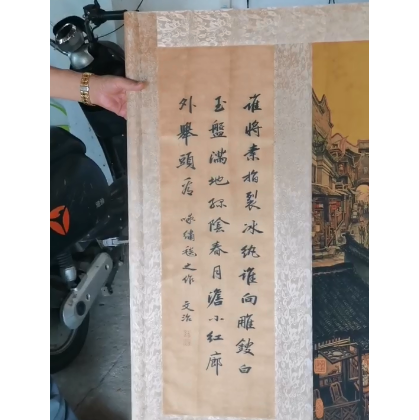 誰將素指裂冰紈誰向雕鎪白
玉盤滿地綠陰春月澹小紅廊
外舉頭看 咏繡毬之作 文治